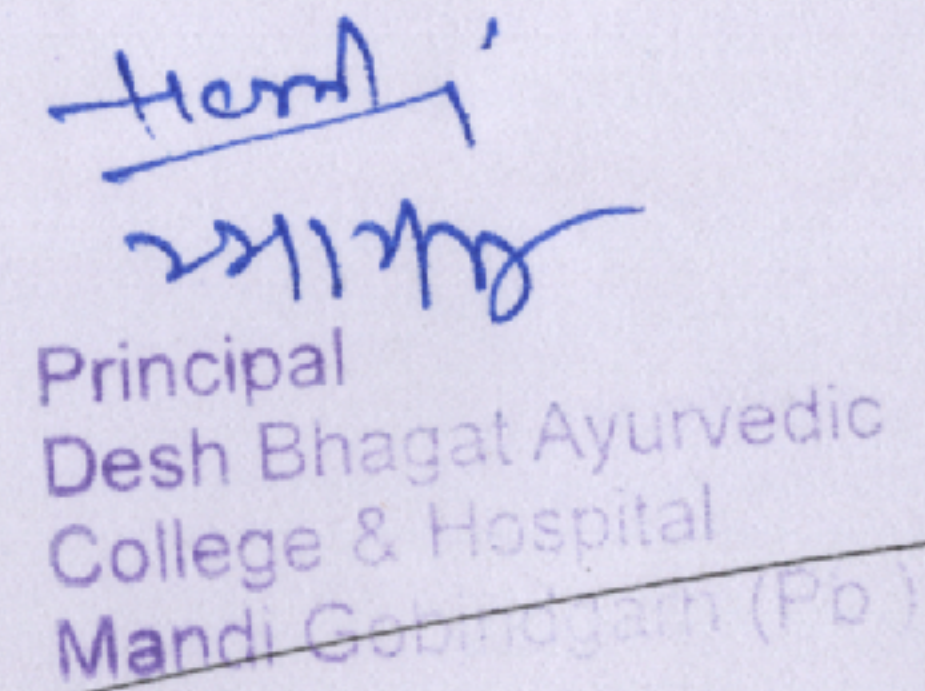 Principal
Desh Bhagat Ayurvedic
College & Hospital
Mandi Gobindgarh (Pb )